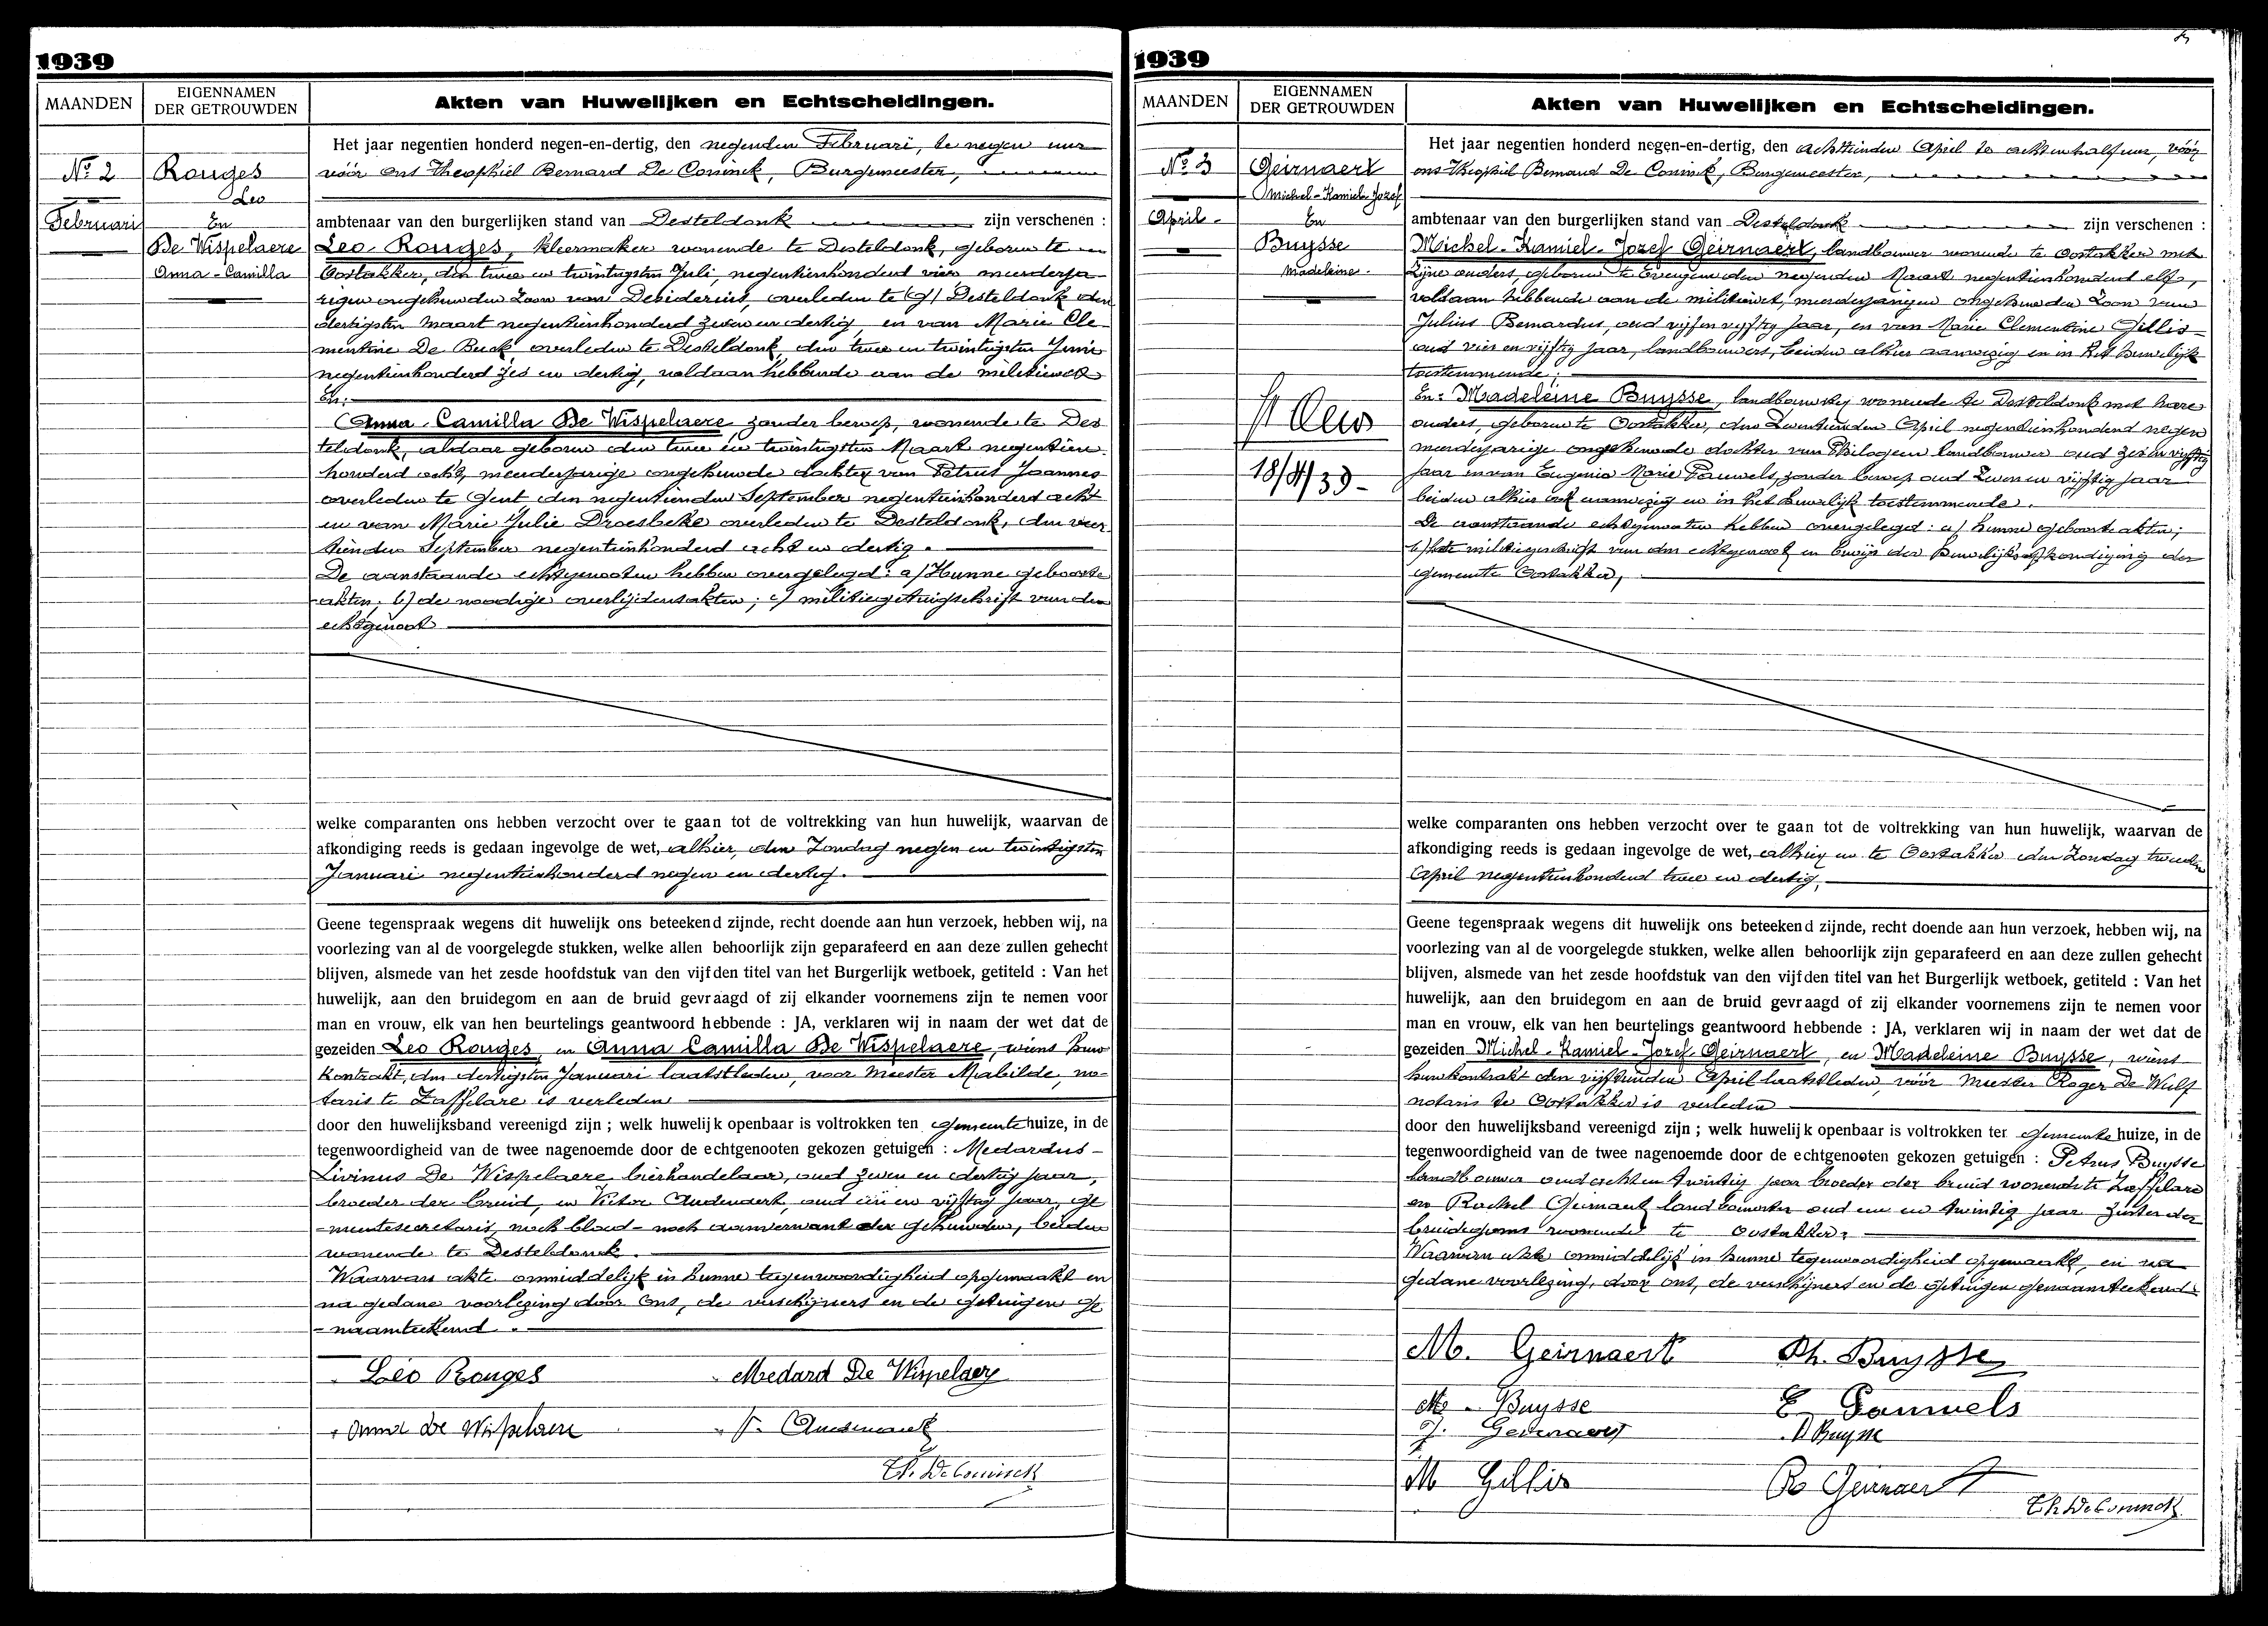 1939
MAANDEN
EIGENNAMEN
DER GETROUWDEN
Akten van Huwelijken en Echtscheidingen.
No 2
Februari
Rouges
Leo
En
De Wispelaere
Anna-Camilla
Het jaar negentien honderd negen-en-dertig, den negenden Februari, te negen uur
vóór ons Theophiel Bernard De Coninck, Burgemeester,
ambtenaar van den burgerlijken stand van Desteldonk zijn verschenen :
Leo Rouges, kleermaker wonende te Desteldonk, geboren te
Oostakker, den twee en twintigsten Juli, negentienhonderd vier meerderja-
rigen ongehuwden zoon van Desiderius, overleden te Desteldonk den
dertigsten Maart negentienhonderd zeven en dertig, en van Marie Cle-
mentine De Buck overleden te Desteldonk, den twee en twintigsten Juni
negentienhonderd zes en dertig, voldaan hebbende aan de militiewet
En:
Anna-Camilla De Wispelaere zonder beroep, wonende te Des
teldonk, aldaar geboren den twee en twintigsten Maart negentien-
honderd acht, meerderjarige ongehuwde dochter van Petrus Joannes
overleden te Gent den negentienden September negentienhonderd acht
en van Marie Julie Droesbeke overleden te Desteldonk, den veer-
tienden September negentienhonderd acht en dertig.
De aanstaande echtgenooten hebben overgelegd: a/ Hunne geboorte
akten; b/ de noodige overlijdensakten; c/ militiegetuigschrift van den
echtgenoot
welke comparanten ons hebben verzocht over te gaan tot de voltrekking van hun huwelijk, waarvan de
afkondiging reeds is gedaan ingevolge de wet, alhier, den Zondag negen en twintigsten
Januari negentienhonderd negen en dertig.
Geene tegenspraak wegens dit huwelijk ons beteekend zijnde, recht doende aan hun verzoek, hebben wij, na
voorlezing van al de voorgelegde stukken, welke allen behoorlijk zijn geparafeerd en aan deze zullen gehecht
blijven, alsmede van het zesde hoofdstuk van den vijfden titel van het Burgerlijk wetboek, getiteld : Van het
huwelijk, aan den bruidegom en aan de bruid gevraagd of zij elkander voornemens zijn te nemen voor
man en vrouw, elk van hen beurtelings geantwoord hebbende : JA, verklaren wij in naam der wet dat de
gezeiden Leo Rouges, en Anna Camilla De Wispelaere, wiens huw
kontrakt, den dertigsten Januari laatstleden, voor Meester Mabilde, no-
taris te Zaffelare is verleden
door den huwelijksband vereenigd zijn ; welk huwelijk openbaar is voltrokken ten gemeentehuize, in de
tegenwoordigheid van de twee nagenoemde door de echtgenooten gekozen getuigen : Medardus-
Livinus De Wispelaere bierhandelaar, oud zeven en dertig jaar,
broeder der bruid, en Victor Audenaert, oud één en vijftig jaar, ge
-meentesecretaris, noch bloed- noch aanverwant der gehuwden, beiden
wonende te Desteldonk.
Waarvan akte onmiddelijk in hunne tegenwoordigheid opgemaakt en
na gedane voorlezing door ons, de verschijners en de getuigen ge
-naamteekend.
Léo Rouges
Medard De Wispelaere
Anna De Wispelaere
V. Audenaert
Th. De Coninck
1939
MAANDEN
EIGENNAMEN
DER GETROUWDEN
Akten van Huwelijken en Echtscheidingen.
No 3
April
Geirnaert
Michel-Kamiel-Jozef
En
Buysse
Madeleine
18/4/39-
Het jaar negentien honderd negen-en-dertig, den achttienden April te acht en half uur, vóór
ons Theophiel Bernard De Coninck, Burgemeester,
ambtenaar van den burgerlijken stand van Desteldonk zijn verschenen :
Michel-Kamiel-Jozef Geirnaert, landbouwer wonende te Oostakker met
zijne ouders, geboren te Evergem den negenden Maart negentienhonderd elf,
voldaan hebbende aan de militiewet, meerderjarigen ongehuwden zoon van
Julius Bernardus, oud vijf en vijftig jaar, en van Marie Clementine Gillis
oud vier en vijftig jaar, landbouwers, beiden alhier aanwezig en in het huwelijk
toestemmende;
En: Madeleine Buysse, landbouwster wonende te Desteldonk met hare
ouders, geboren te Oostakker, den zeventienden April negentienhonderd negen
meerderjarige ongehuwde dochter van Philogeen landbouwer oud zes en vijftig
jaar en van Eugenia Marie Pauwels, zonder beroep oud zeven en vijftig jaar
beiden alhier ook aanwezig en in het huwelijk toestemmende.
De aanstaande echtgenooten hebben overgelegd: a/ hunne geboorteakten;
b/ het militiegeschrift van den echtgenoot en bewijs der huwelijksafkondiging der
gemeente Oostakker,
welke comparanten ons hebben verzocht over te gaan tot de voltrekking van hun huwelijk, waarvan de
afkondiging reeds is gedaan ingevolge de wet, alhier en te Oostakker den Zondag tweeden
April negentienhonderd twee en dertig,
Geene tegenspraak wegens dit huwelijk ons beteekend zijnde, recht doende aan hun verzoek, hebben wij, na
voorlezing van al de voorgelegde stukken, welke allen behoorlijk zijn geparafeerd en aan deze zullen gehecht
blijven, alsmede van het zesde hoofdstuk van den vijfden titel van het Burgerlijk wetboek, getiteld : Van het
huwelijk, aan den bruidegom en aan de bruid gevraagd of zij elkander voornemens zijn te nemen voor
man en vrouw, elk van hen beurtelings geantwoord hebbende : JA, verklaren wij in naam der wet dat de
gezeiden Michel-Kamiel-Jozef Geirnaert, en Madeleine Buysse, wiens
huwkontrakt den vijftienden April laatstleden, vóór Meester Roger De Wulf
notaris te Oostakker is verleden
door den huwelijksband vereenigd zijn ; welk huwelijk openbaar is voltrokken ten gemeentehuize, in de
tegenwoordigheid van de twee nagenoemde door de echtgenooten gekozen getuigen : Petrus Buysse
landbouwer oud acht en twintig jaar broeder der bruid wonende te Zaffelare
en Rachel Geirnaert landbouwster oud een en twintig jaar zuster der
bruidegoms wonende te Oostakker.
Waarvan akte onmiddelijk in hunne tegenwoordigheid opgemaakt, en na
gedane voorlezing, door ons, de verschijners en de getuigen genaamteekend.
M. Geirnaert
Ph. Buysse
M. Buysse
E Pauwels
J. Geirnaert
P Buysse
M Gillis
Ra Geirnaert
Th De Coninck